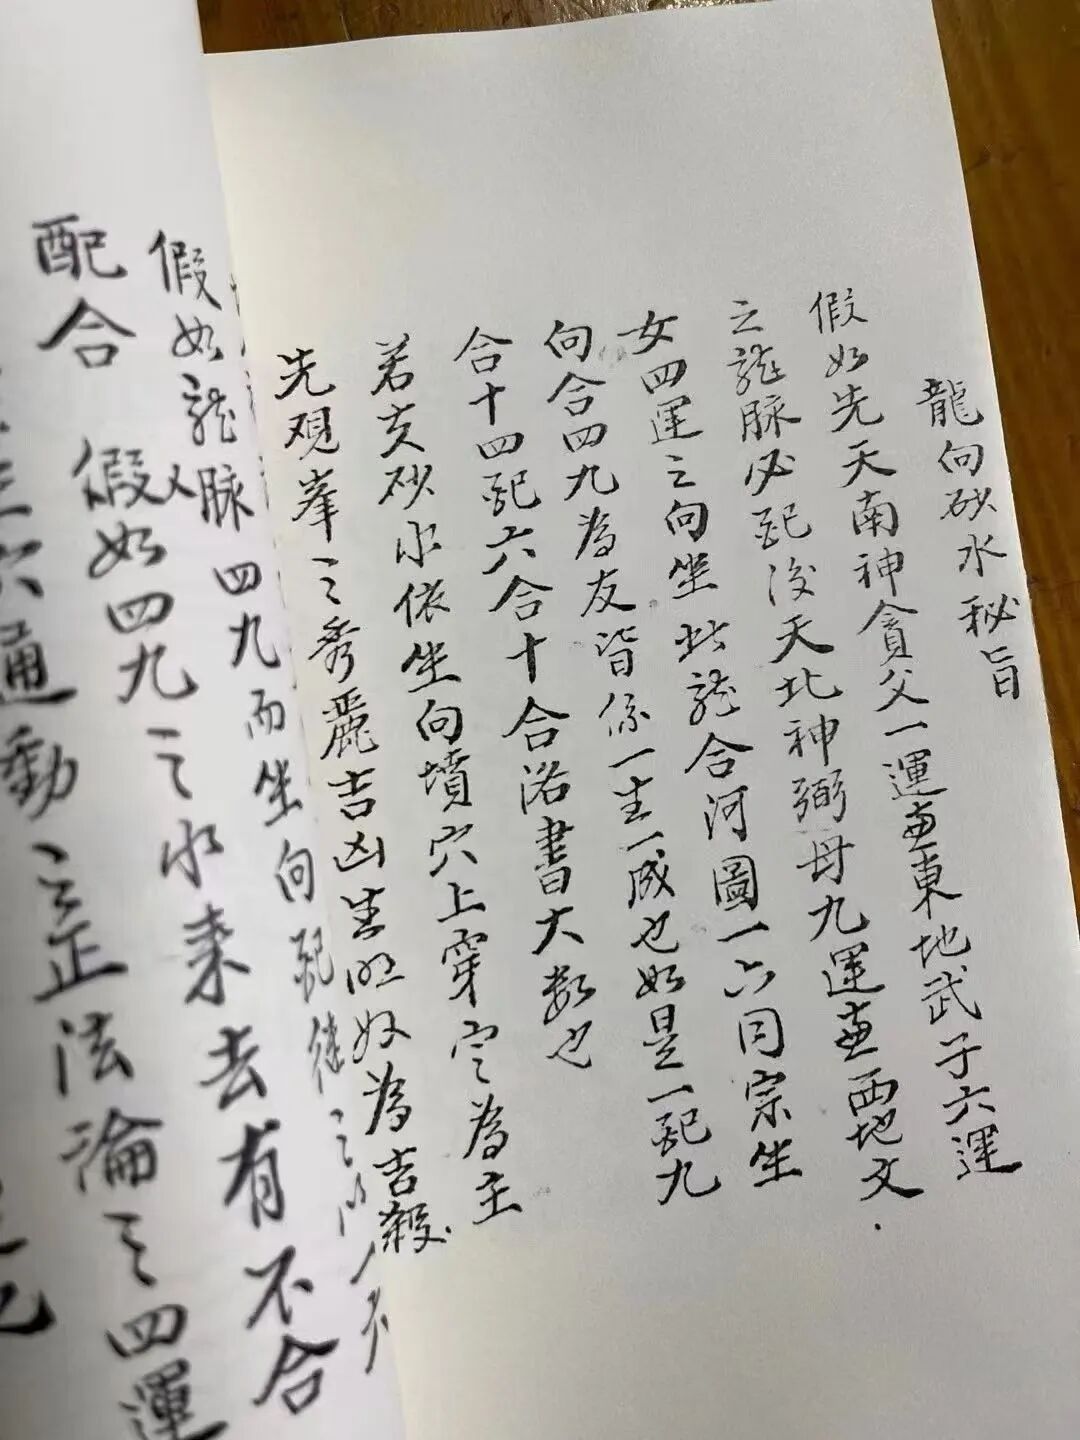 龍向砂水秘旨
假如先天南神貪父一運兼東地武子六運
之龍脉必配後天北神弼母九運兼西地文
女四運之向坐此龍合河圖一六同宗坐
向合四九為友皆係一生一成也如是一配九
合十四配六合十合洛書大数也
若夫砂水依坐向墳穴上穿定為主
先观峯之秀麗吉凶生旺奴為吉殺
假如龍脉四九而坐向配
假如四九之水来去有不合
配合
通動之正法淪之四運